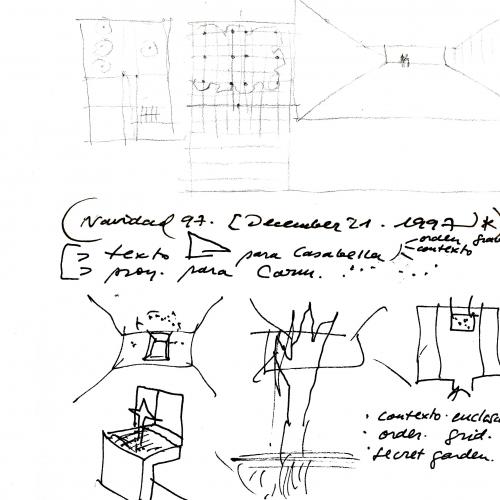 (Navidad 97. [December 21. 1997) *
> texto para Casabella
orden
contexto
> proy. para
• contexto.
• orden. grid.
• secret garden.